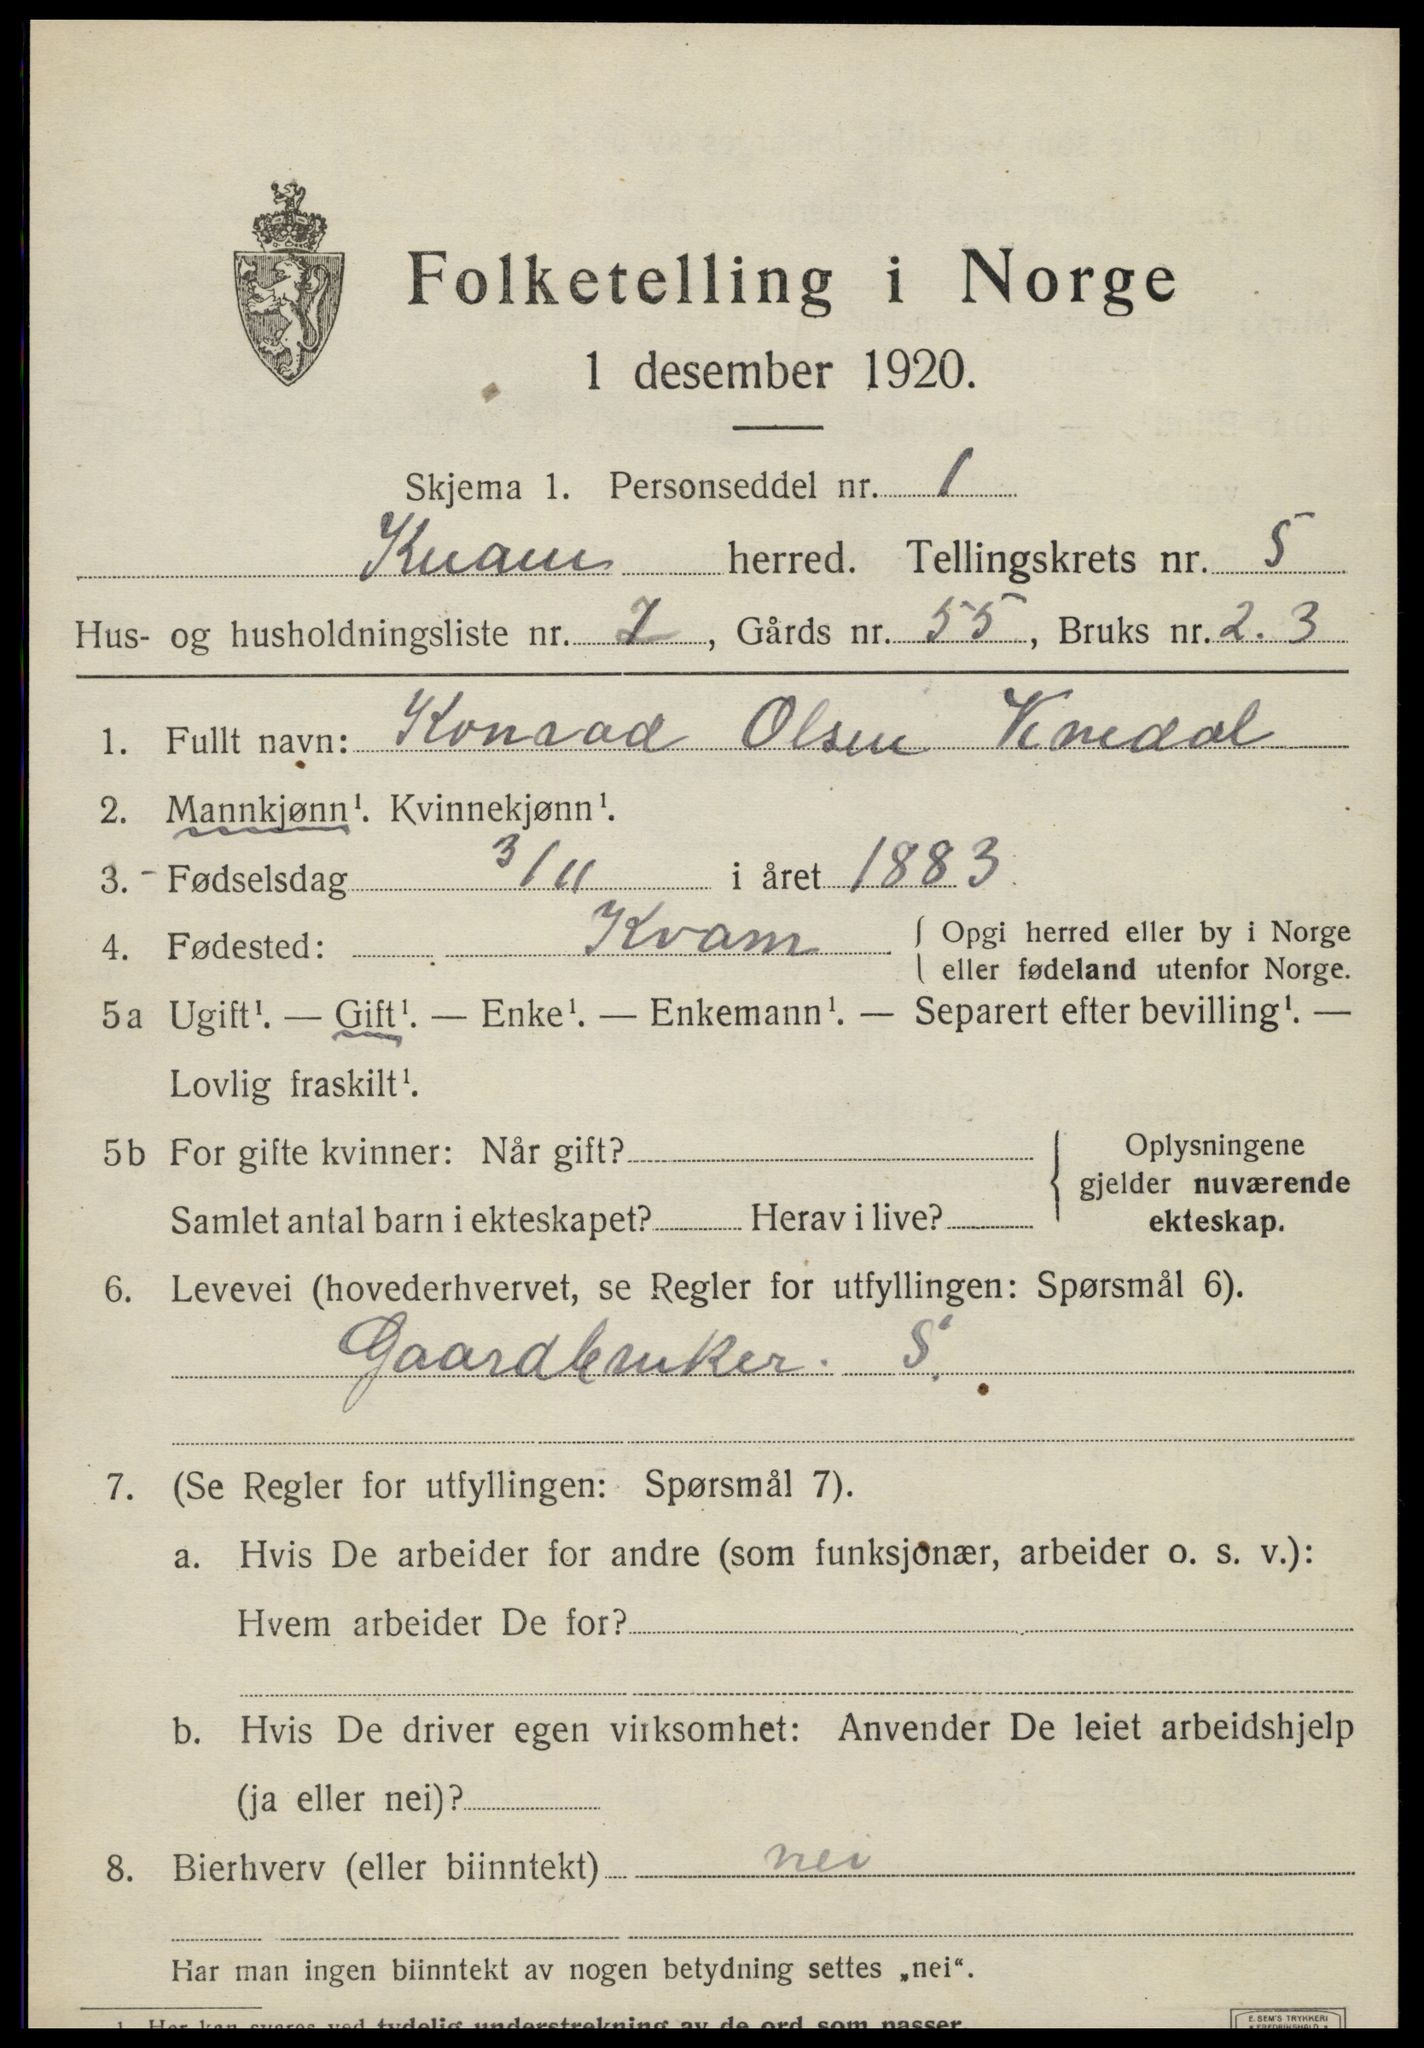 Folketelling i Norge
1 desember 1920.
Skjema 1. Personseddel nr. 1
Kvam herred. Tellingskrets nr. 5
Hus- og husholdningsliste nr. 7, Gårds nr. 55, Bruks nr. 2. 3
1. Fullt navn: Konrad Olsen
2. Mannkjønn¹. Kvinnekjønn¹.
3. Fødselsdag 3/11 i året 1883
4. Fødested: Kvam { Opgi herred eller by i Norge
eller fødeland utenfor Norge.
5a Ugift¹. — Gift¹. — Enke¹. — Enkemann¹. — Separert efter bevilling¹. —
Lovlig fraskilt¹.
5b For gifte kvinner: Når gift? Oplysningene
gjelder nuværende
Samlet antal barn i ekteskapet? Herav i live? ekteskap.
6. Levevei (hovederhvervet, se Regler for utfyllingen: Spørsmål 6).
Gaardbruker. S.
7. (Se Regler for utfyllingen: Spørsmål 7).
a. Hvis De arbeider for andre (som funksjonær, arbeider o. s. v.):
Hvem arbeider De for?
b. Hvis De driver egen virksomhet: Anvender De leiet arbeidshjelp
(ja eller nei)?
8. Bierhverv (eller biinntekt) nei
Har man ingen biinntekt av nogen betydning settes „nei“.
1 Her kan svares ved tydelig understrekning av de ord som passer.
E. SEM'S TRYKKERI
FREDRIKSHALD